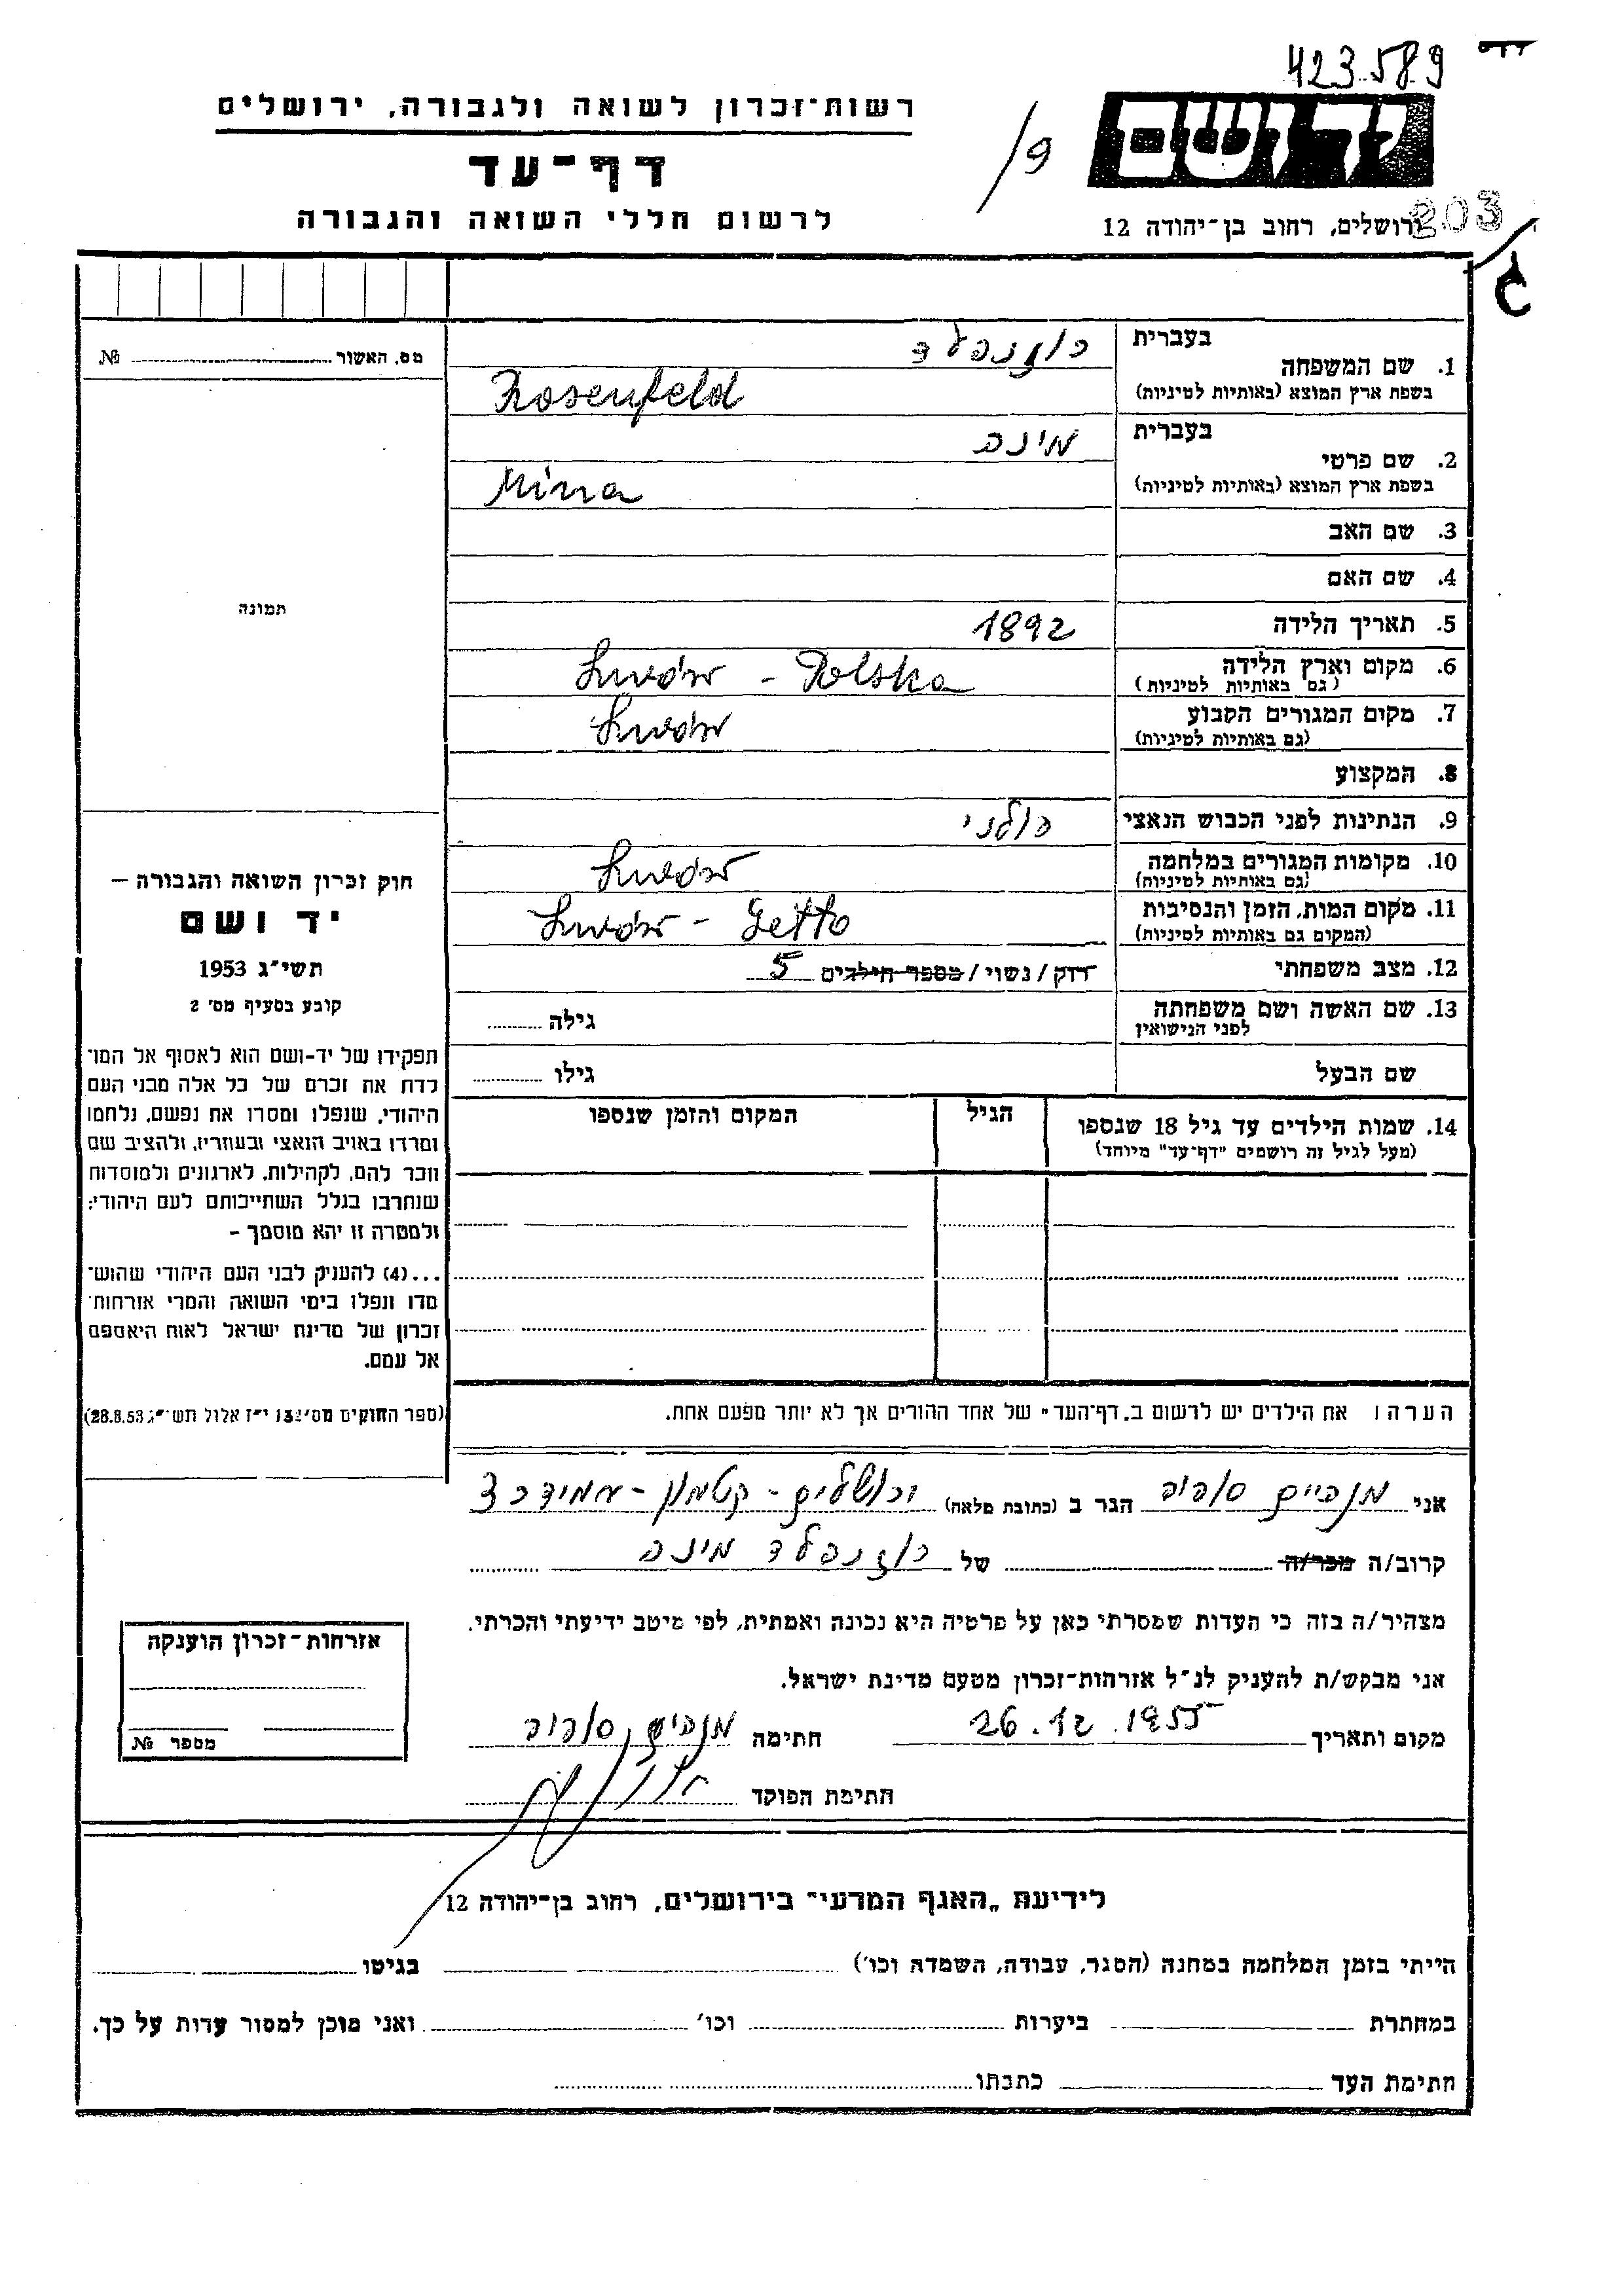 423589
רשות־זכרון לשואה ולגבורה, ירושלים
דף־עד
לרשום חללי השואה והגבורה
9
יד ושם
203
ירושלים, רחוב בן־יהודה 12
מס. האשור № 
בעברית רוזנפלד
1. שם המשפחה
בשפת ארץ המוצא (באותיות לטיניות) Rosenfeld
בעברית מינה
2. שם פרטי
בשפת ארץ המוצא (באותיות לטיניות) Mina
3. שם האב
4. שם האם
תמונה
5. תאריך הלידה 1892
6. מקום וארץ הלידה Lwów - Polska
(גם באותיות לטיניות)
7. מקום המגורים הקבוע Lwów
(גם באותיות לטיניות)
8. המקצוע
9. הנתינות לפני הכבוש הנאצי פולני
10. מקומות המגורים במלחמה Lwów
(גם באותיות לטיניות)
11. מקום המות, הזמן והנסיבות Lwów - Getto
(המקום גם באותיות לטיניות)
12. מצב משפחתי רוק/נשוי/מספר הילדים 5
13. שם האשה ושם משפחתה גילה
לפני הנישואין
שם הבעל גילו
14. שמות הילדים עד גיל 18 שנספו הגיל המקום והזמן שנספו
(מעל לגיל זה רושמים "דף־עד" מיוחד)
חוק זכרון השואה והגבורה –
יד ושם
תשי"ג 1953
קובע בסעיף מס' 2
תפקידו של יד-ושם הוא לאסוף אל המו־
לדת את זכרם של כל אלה מבני העם
היהודי, שנפלו ומסרו את נפשם, נלחמו
ומרדו באויב הנאצי ובעוזריו, ולהציב שם
וזכר להם, לקהילות, לארגונים ולמוסדות
שנחרבו בגלל השתייכותם לעם היהודי;
ולמטרה זו יהא מוסמך –
...(4) להעניק לבני העם היהודי שהוש־
מדו ונפלו בימי השואה והמרי אזרחות־
זכרון של מדינת ישראל לאות היאספם
אל עמם.
(ספר החוקים מס' 132 י"ז אלול תשי"ג 28.8.53)
הערה: את הילדים יש לרשום ב"דף־העד" של אחד ההורים אך לא יותר מפעם אחת.
אני הגר ב (כתובת מלאה) ירושלים - קטמון - עמידר 3
קרוב/ה מכר/ה של רוזנפלד מינה
מצהיר/ה בזה כי העדות שמסרתי כאן על פרטיה היא נכונה ואמתית, לפי מיטב ידיעתי והכרתי.
אני מבקש/ת להעניק לנ"ל אזרחות־זכרון מטעם מדינת ישראל.
מקום ותאריך 26.12.1955 חתימה
חתימת הפוקד
אזרחות־זכרון הוענקה
מספר №
לידיעת "האגף המדעי" בירושלים, רחוב בן־יהודה 12
הייתי בזמן המלחמה במחנה (הסגר, עבודה, השמדה וכו') בגיטו
במחתרת ביערות וכו' ואני מוכן למסור עדות על כך.
חתימת העד כתבתו